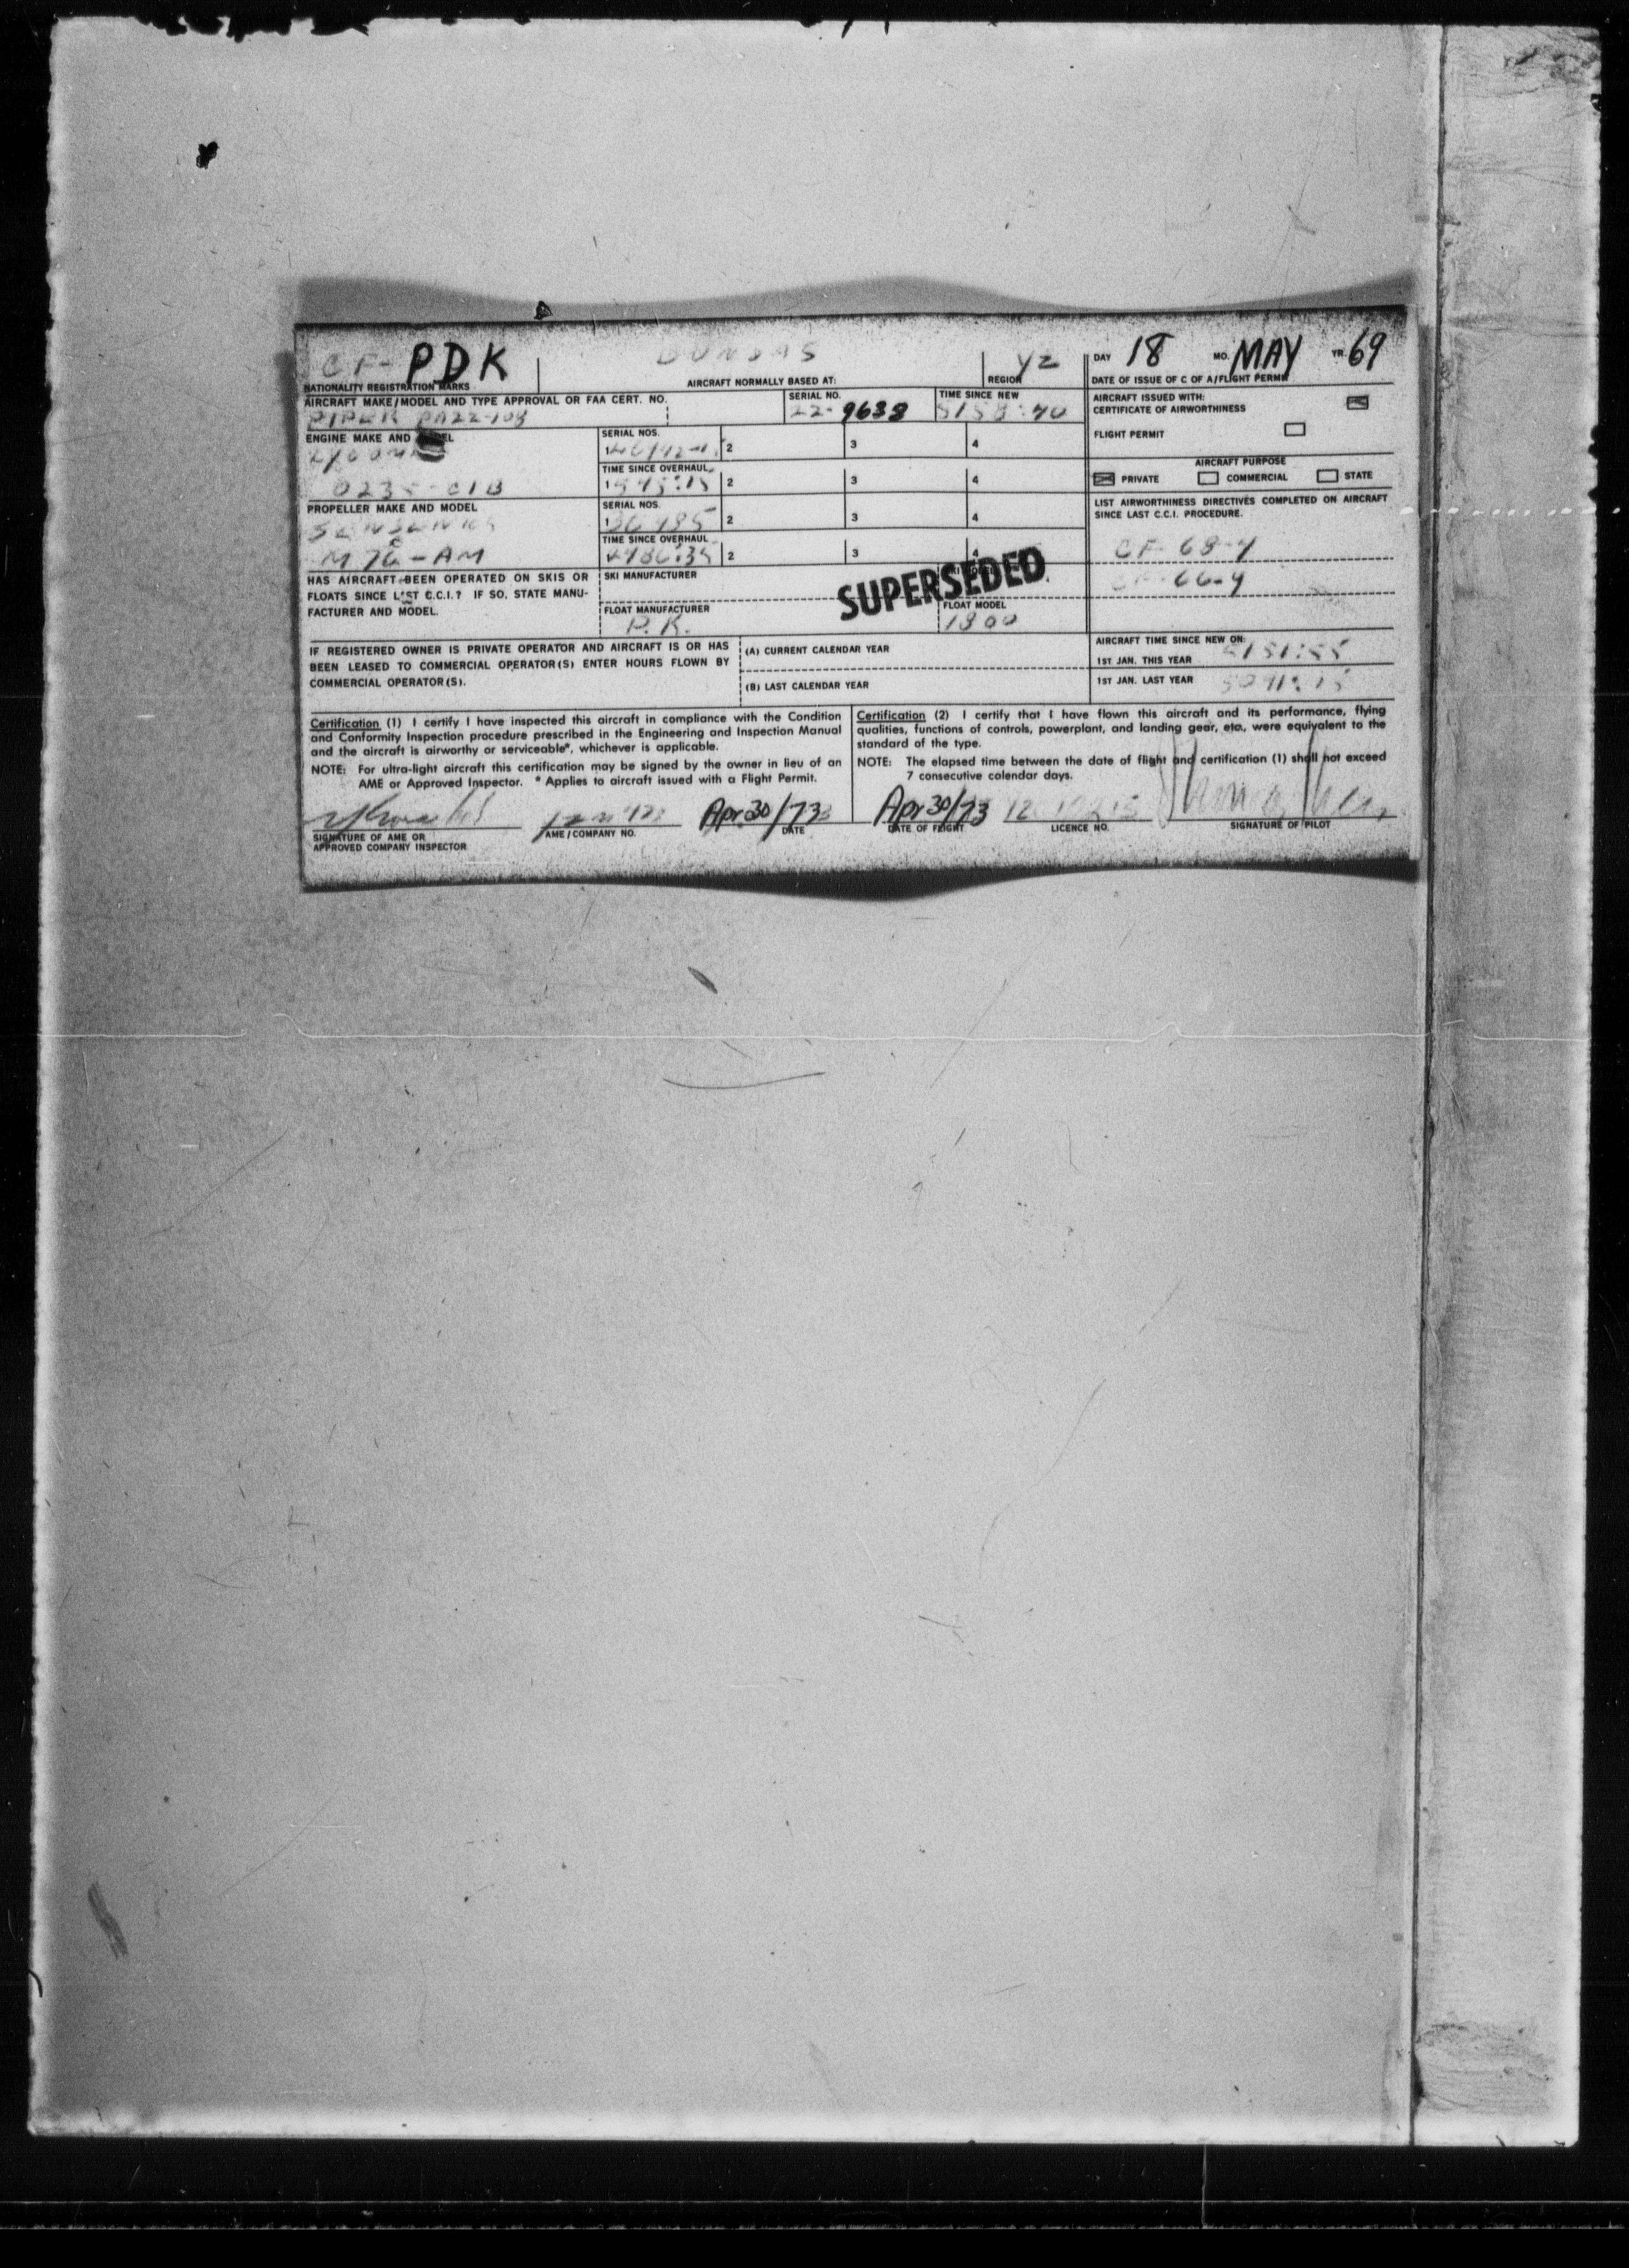 CF-PDK DUNDAS YZ DAY 18 MO. MAY YR. 69
NATIONALITY REGISTRATION MARKS AIRCRAFT NORMALLY BASED AT: REGION DATE OF ISSUE OF C OF A/FLIGHT PERMIT
AIRCRAFT MAKE/MODEL AND TYPE APPROVAL OR FAA CERT. NO. SERIAL NO. TIME SINCE NEW AIRCRAFT ISSUED WITH:
PIPER PA22-108 22-9638 5158:40 CERTIFICATE OF AIRWORTHINESS
ENGINE MAKE AND SERIAL NOS. FLIGHT PERMIT
1 2 3 4
TIME SINCE OVERHAUL AIRCRAFT PURPOSE
O235-C1B 1 595:15 2 3 4 PRIVATE COMMERCIAL STATE
PROPELLER MAKE AND MODEL SERIAL NOS. LIST AIRWORTHINESS DIRECTIVES COMPLETED ON AIRCRAFT
SINCE LAST C.C.I. PROCEDURE.
1 2 3 4
TIME SINCE OVERHAUL
M76-AM 2 3 4 CF-68-4
HAS AIRCRAFT BEEN OPERATED ON SKIS OR SKI MANUFACTURER SUPERSEDED 66-4
FLOATS SINCE LAST C.C.I.? IF SO, STATE MANU-
FACTURER AND MODEL. FLOAT MANUFACTURER FLOAT MODEL
P.K. 1800
IF REGISTERED OWNER IS PRIVATE OPERATOR AND AIRCRAFT IS OR HAS (A) CURRENT CALENDAR YEAR AIRCRAFT TIME SINCE NEW ON:
BEEN LEASED TO COMMERCIAL OPERATOR(S) ENTER HOURS FLOWN BY 1ST JAN. THIS YEAR 5151:55
COMMERCIAL OPERATOR(S). (B) LAST CALENDAR YEAR 1ST JAN. LAST YEAR 5091:15
Certification (1) I certify I have inspected this aircraft in compliance with the Condition
and Conformity Inspection procedure prescribed in the Engineering and Inspection Manual
and the aircraft is airworthy or serviceable*, whichever is applicable.
NOTE: For ultra-light aircraft this certification may be signed by the owner in lieu of an
AME or Approved Inspector. * Applies to aircraft issued with a Flight Permit.
Certification (2) I certify that I have flown this aircraft and its performance, flying
qualities, functions of controls, powerplant, and landing gear, etc., were equivalent to the
standard of the type.
NOTE: The elapsed time between the date of flight and certification (1) shall not exceed
7 consecutive calendar days.
Apr 30/73 Apr 30/73
SIGNATURE OF AME OR AME/COMPANY NO. DATE DATE OF FLIGHT LICENCE NO. SIGNATURE OF PILOT
APPROVED COMPANY INSPECTOR